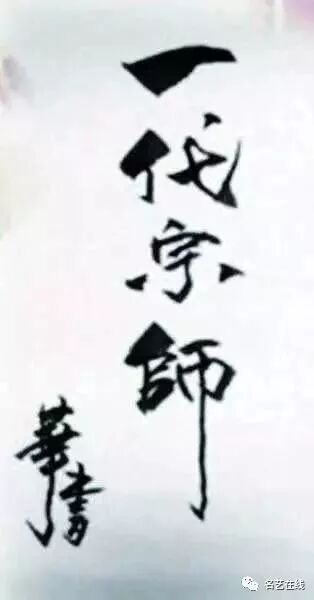 一代宗師
華青
名艺在线